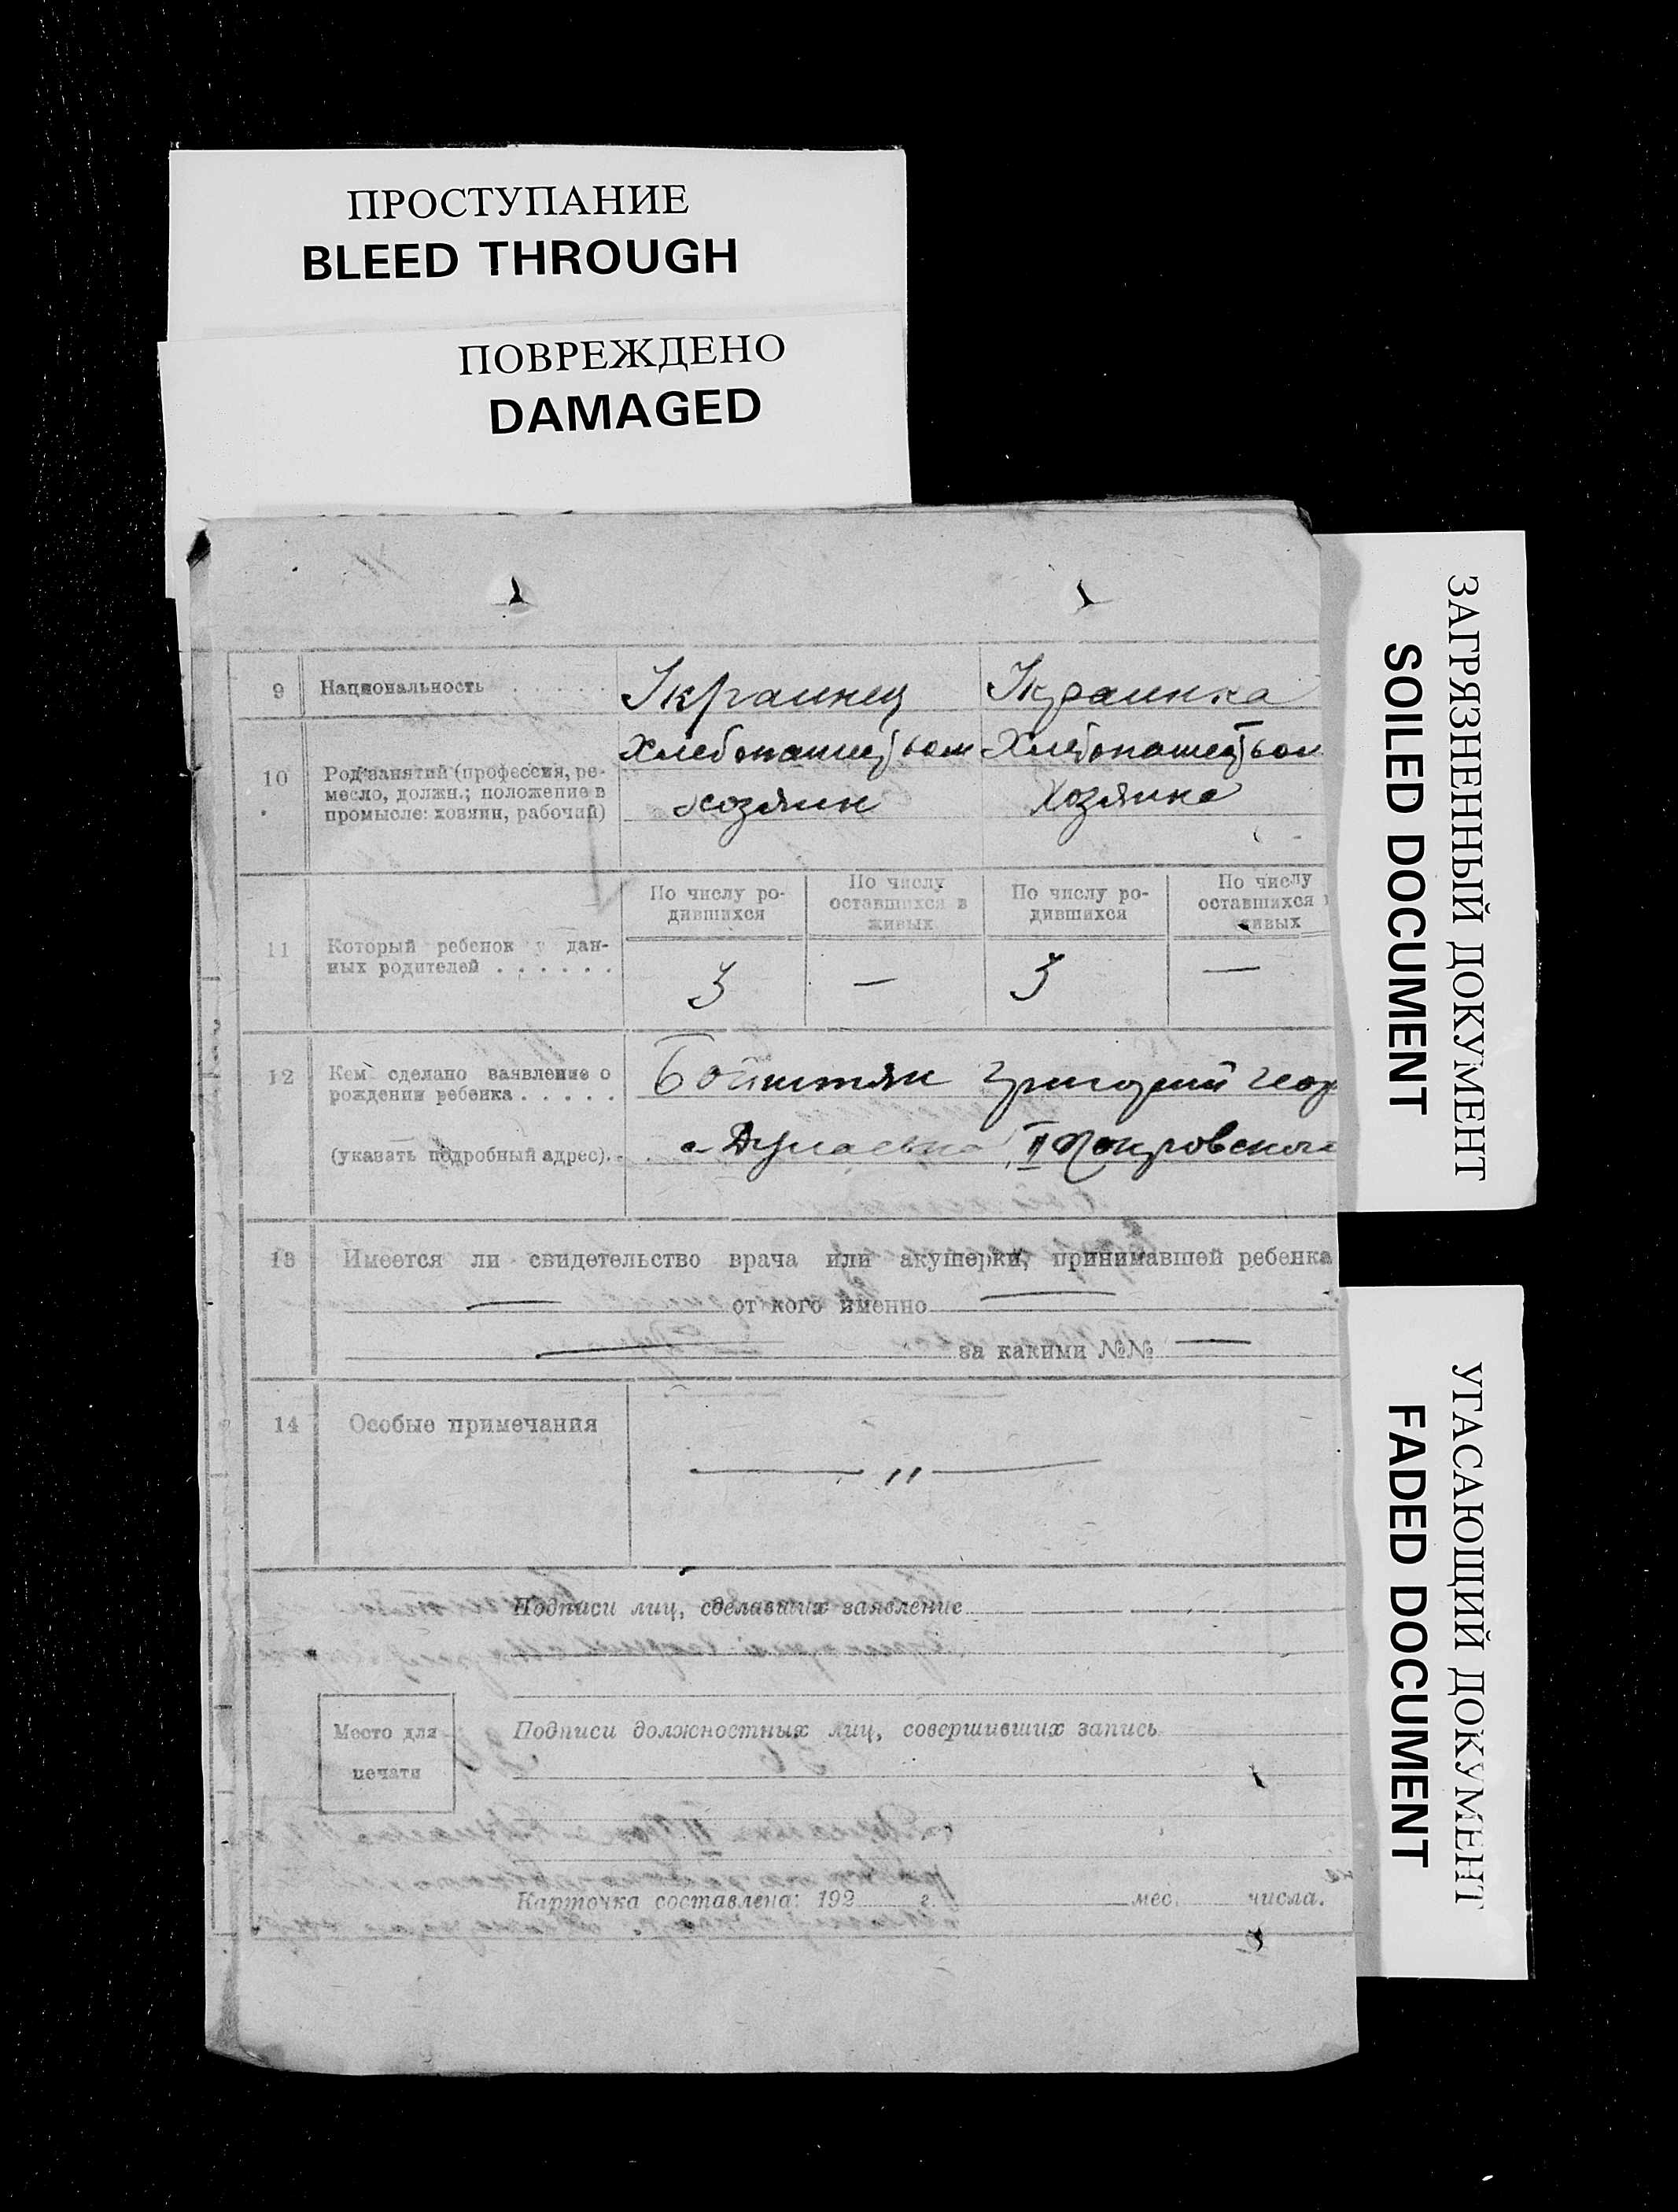 ПРОСТУПАНИЕ
BLEED THROUGH
ПОВРЕЖДЕНО
DAMAGED
ЗАГРЯЗНЕННЫЙ ДОКУМЕНТ
SOILED DOCUMENT
УГАСАЮЩИЙ ДОКУМЕНТ
FADED DOCUMENT
9 Национальность . . . . . Украинец Украинка
Хлебопашеством Хлебопашеством
10 Род занятий (профессия, ре-
месло, должн.; положение в
промысле: хозяин, рабочий)
хозяин Хозяйка
По числу ро-
дившихся
По числу
оставшихся в
живых
По числу ро-
дившихся
По числу
оставшихся в
живых
11 Который ребенок у дан-
ных родителей . . . . . .
3 — 3 —
12 Кем сделано заявление о
рождении ребенка . . . . .
Григорий Геор
(указать подробный адрес). . . с. II Покровского
13 Имеется ли свидетельство врача или акушерки, принимавшей ребенка
— от кого именно —
— за какими №№ —
14 Особые примечания
— " —
Подписи лиц, сделавших заявление
Место для
печати
Подписи должностных лиц, совершивших запись
Карточка составлена: 192 г. мес. числа.